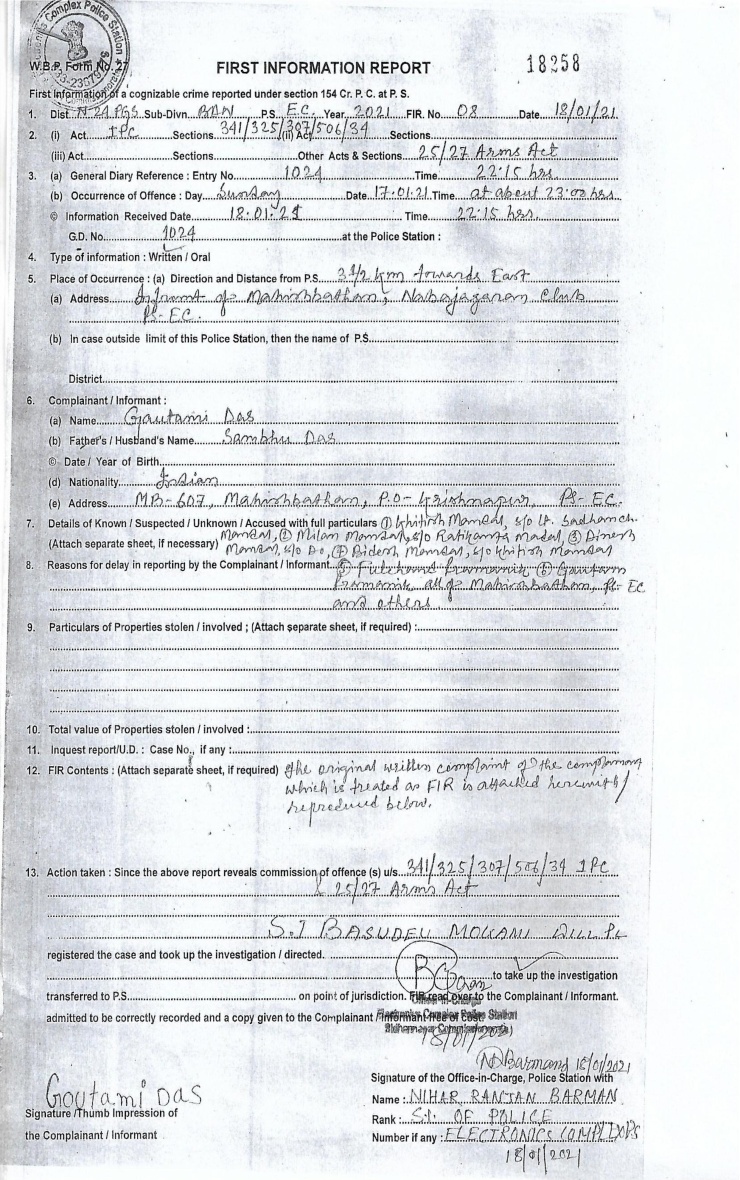 Complex Police Station
W.B.P. Form No. 27
FIRST INFORMATION REPORT
18258
First Information of a cognizable crime reported under section 154 Cr. P. C. at P. S.
1. Dist. N-24 PGS Sub-Divn. BDN P.S. E.C. Year 2021 FIR. No. 08 Date 18/01/21
2. (i) Act IPC Sections 341/325/307/506/34 (ii) Act Sections
(iii) Act Sections Other Acts & Sections 25/27 Arms Act
3. (a) General Diary Reference : Entry No. 1024 Time 22:15 hrs
(b) Occurrence of Offence : Day Sunday Date 17.01.21 Time at about 23:00 hrs
© Information Received Date 18.01.21 Time 22:15 hrs.
G.D. No. 1024 at the Police Station :
4. Type of information : Written / Oral
5. Place of Occurrence : (a) Direction and Distance from P.S. 3 1/2 km towards East
(a) Address Infront of Mahishbathan, Nabajagaran Club
PS- EC.
(b) In case outside limit of this Police Station, then the name of P.S.
District
6. Complainant / Informant :
(a) Name Gautami Das
(b) Father's / Husband's Name Sambhu Das
© Date / Year of Birth
(d) Nationality Indian
(e) Address MB-607, Mahishbathan, P.O- Krishnapur, PS- EC.
7. Details of Known / Suspected / Unknown / Accused with full particulars ① Khitish Mondal, s/o Lt. Sadhan ch.
(Attach separate sheet, if necessary) Mondal, ② Milan Mondal, s/o Ratikanta Modal, ③ Dinesh
Mondal, s/o Do, ④ Bidesh Mondal, s/o Khitish Mondal
8. Reasons for delay in reporting by the Complainant / Informant ⑤ Pramanik, ⑥ Gautam
Pramanik, all of Mahishbathan, PS- EC
and others
9. Particulars of Properties stolen / involved ; (Attach separate sheet, if required) :
10. Total value of Properties stolen / involved :
11. Inquest report/U.D. : Case No., if any :
12. FIR Contents : (Attach separate sheet, if required) The original written complaint of the complainant
which is treated as FIR is attached herewith/
reproduced below.
13. Action taken : Since the above report reveals commission of offence (s) u/s 341/325/307/506/34 IPC
& 25/27 Arms Act
S.I BASUDEV MOHANI WILL PL
registered the case and took up the investigation / directed.
to take up the investigation
transferred to P.S. on point of jurisdiction. FIR read over to the Complainant / Informant.
Officer-in-Charge
admitted to be correctly recorded and a copy given to the Complainant / Informant free of cost.
Electronics Complex Police Station
Bidhannagar Commissionerate
18/01/2021
NBarmang 18/01/2021
Goutami Das
Signature of the Office-in-Charge, Police Station with
Signature /Thumb Impression of
the Complainant / Informant
Name : NIHAR RANJAN BARMAN
Rank : S.I. OF POLICE
Number if any : ELECTRONICS COMPLEX PS
18/01/2021